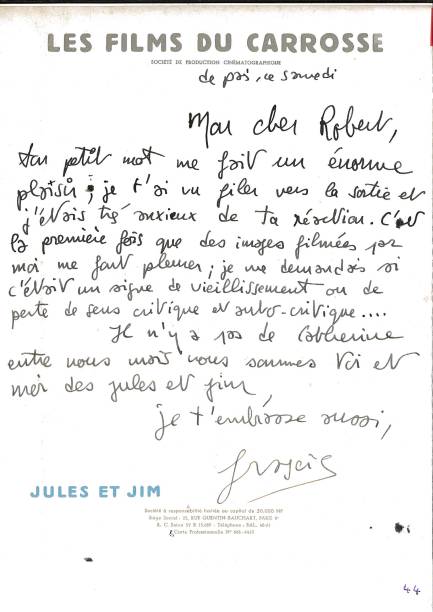 LES FILMS DU CARROSSE
SOCIÉTÉ DE PRODUCTION CINÉMATOGRAPHIQUE
ce samedi
Mon cher Robert,
ton petit mot me fait un énorme
plaisir ; je t'ai vu filer vers la sortie et
j'étais très anxieux de ta réaction. C'est
la première fois que des images filmées par
moi me font pleurer ; je me demandais si
c'était un signe de vieillissement ou de
perte de sens critique et auto-critique....
Il n'y a pas de Catherine
entre nous mais nous sommes toi et
moi des jules et jim,
je t'embrasse aussi,
JULES ET JIM
Société à responsabilité limitée au capital de 20.000 NF
Siège Social : 25, RUE QUENTIN-BAUCHART, PARIS 8e
R. C. Seine 57 B 15.829 - Téléphone : BAL.
Carte Professionnelle N°
44